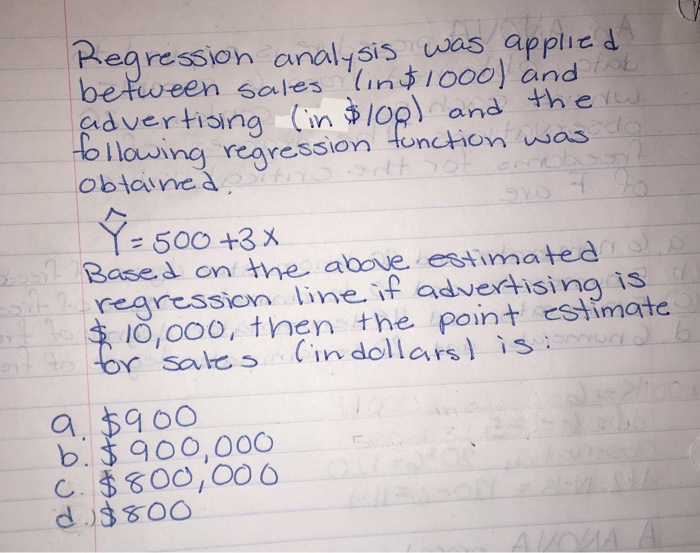 Regression analysis was applied
between sales (in $1000) and
advertising (in $100) and the
following regression function was
obtained.
Ŷ = 500 + 3x
Based on the above estimated
regression line if advertising is
$10,000, then the point estimate
for sales (in dollars) is:
a. $900
b. $900,000
c. $800,000
d. $800